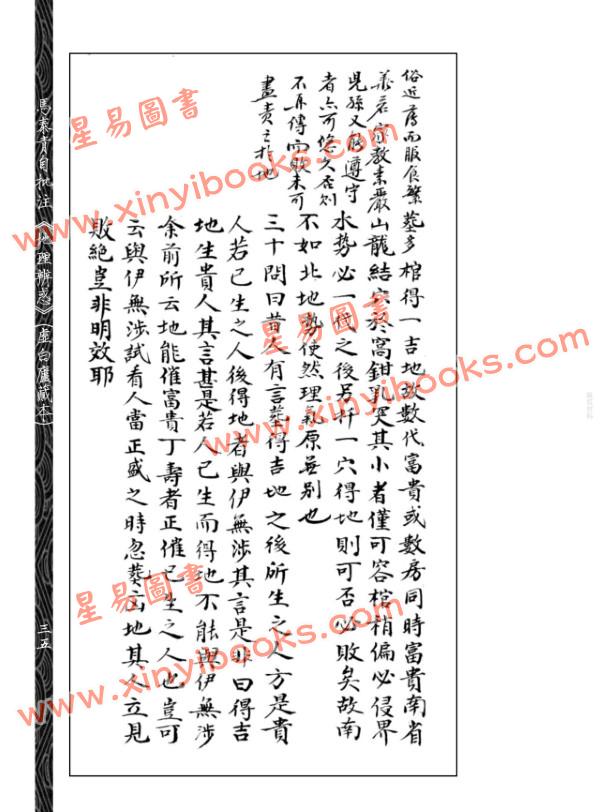 俗近薄而服食繁
美若家教素嚴
兒孫又能遵守
者亦可悠久否則
不再傳而敗未可
盡責之於地
墓多棺得一吉地故數代富貴或數房同時富貴南省
山龍結穴於窩鉗乳突其小者僅可容棺稍偏必侵界
水勢必一代之後另扦一穴得地則可否必敗矣故南
不如北地勢使然理氣原無別也
三十問曰昔人有言葬得吉地之後所生之人方是貴
人若已生之人後得地者與伊無涉其言是非曰得吉
地生貴人其言甚是若人已生而得地不能與伊無涉
余前所云地能催富貴丁壽者正催已生之人也豈可
云與伊無涉試看人當正盛之時忽葬凶地其人立見
敗絕豈非明效耶
馬泰青自批注《地理辨惑》(虛白廬藏本)
三五
星易圖書
www.xinyibooks.com
星易圖書
www.xinyibooks.com
星易圖書
www.xinyibooks.com